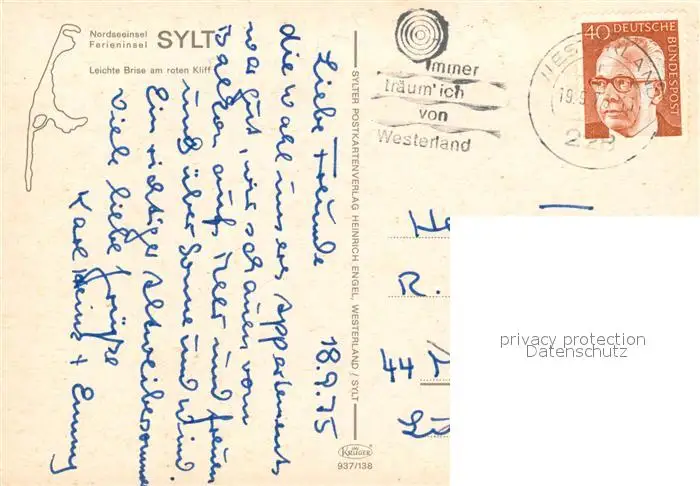 Nordseeinsel
Ferieninsel SYLT
Leichte Brise am roten Kliff
Liebe Freunde 18.9.75
die Wahl unseres Appartements
war gut, wir schauen vom
Balkon aufs Meer und freuen
uns über Sonne und Wind.
Ein richtiger Altweibersommer
Viele liebe Grüße
Karl Heinz + Emmy
SYLTER POSTKARTENVERLAG HEINRICH ENGEL, WESTERLAND / SYLT
KRÜGER
937/138
immer
träum' ich
von
Westerland
WESTERLAND
19.9
228
40 DEUTSCHE BUNDESPOST
R.
44
privacy protection
Datenschutz